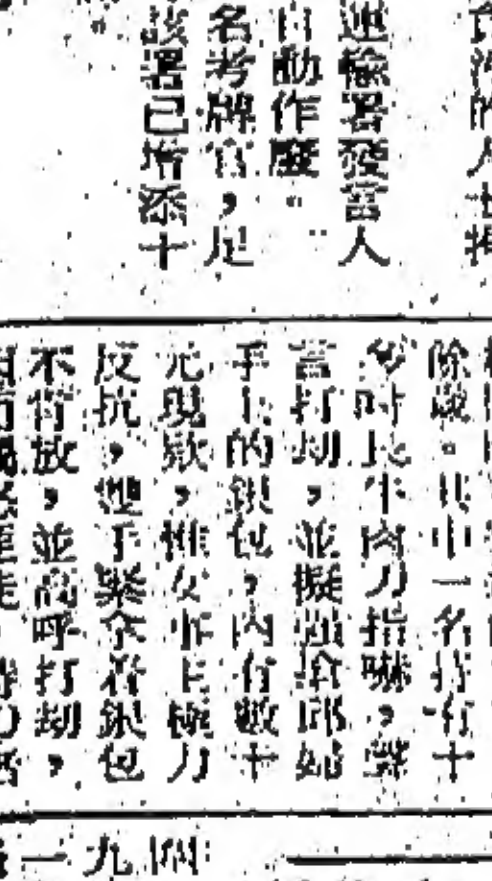 食
的人士
運輸署發言人
自動作廢。」
名考牌官,足
該署已增添十
除歲。其中一名持有十
多吋長牛肉刀指嚇,聲
言打劫,並擬強搶邱婦
手上的銀包,內有數十
元現款,惟女事主極力
反抗,雙手緊拿着銀包
不肯放,並高呼打劫,
一九四